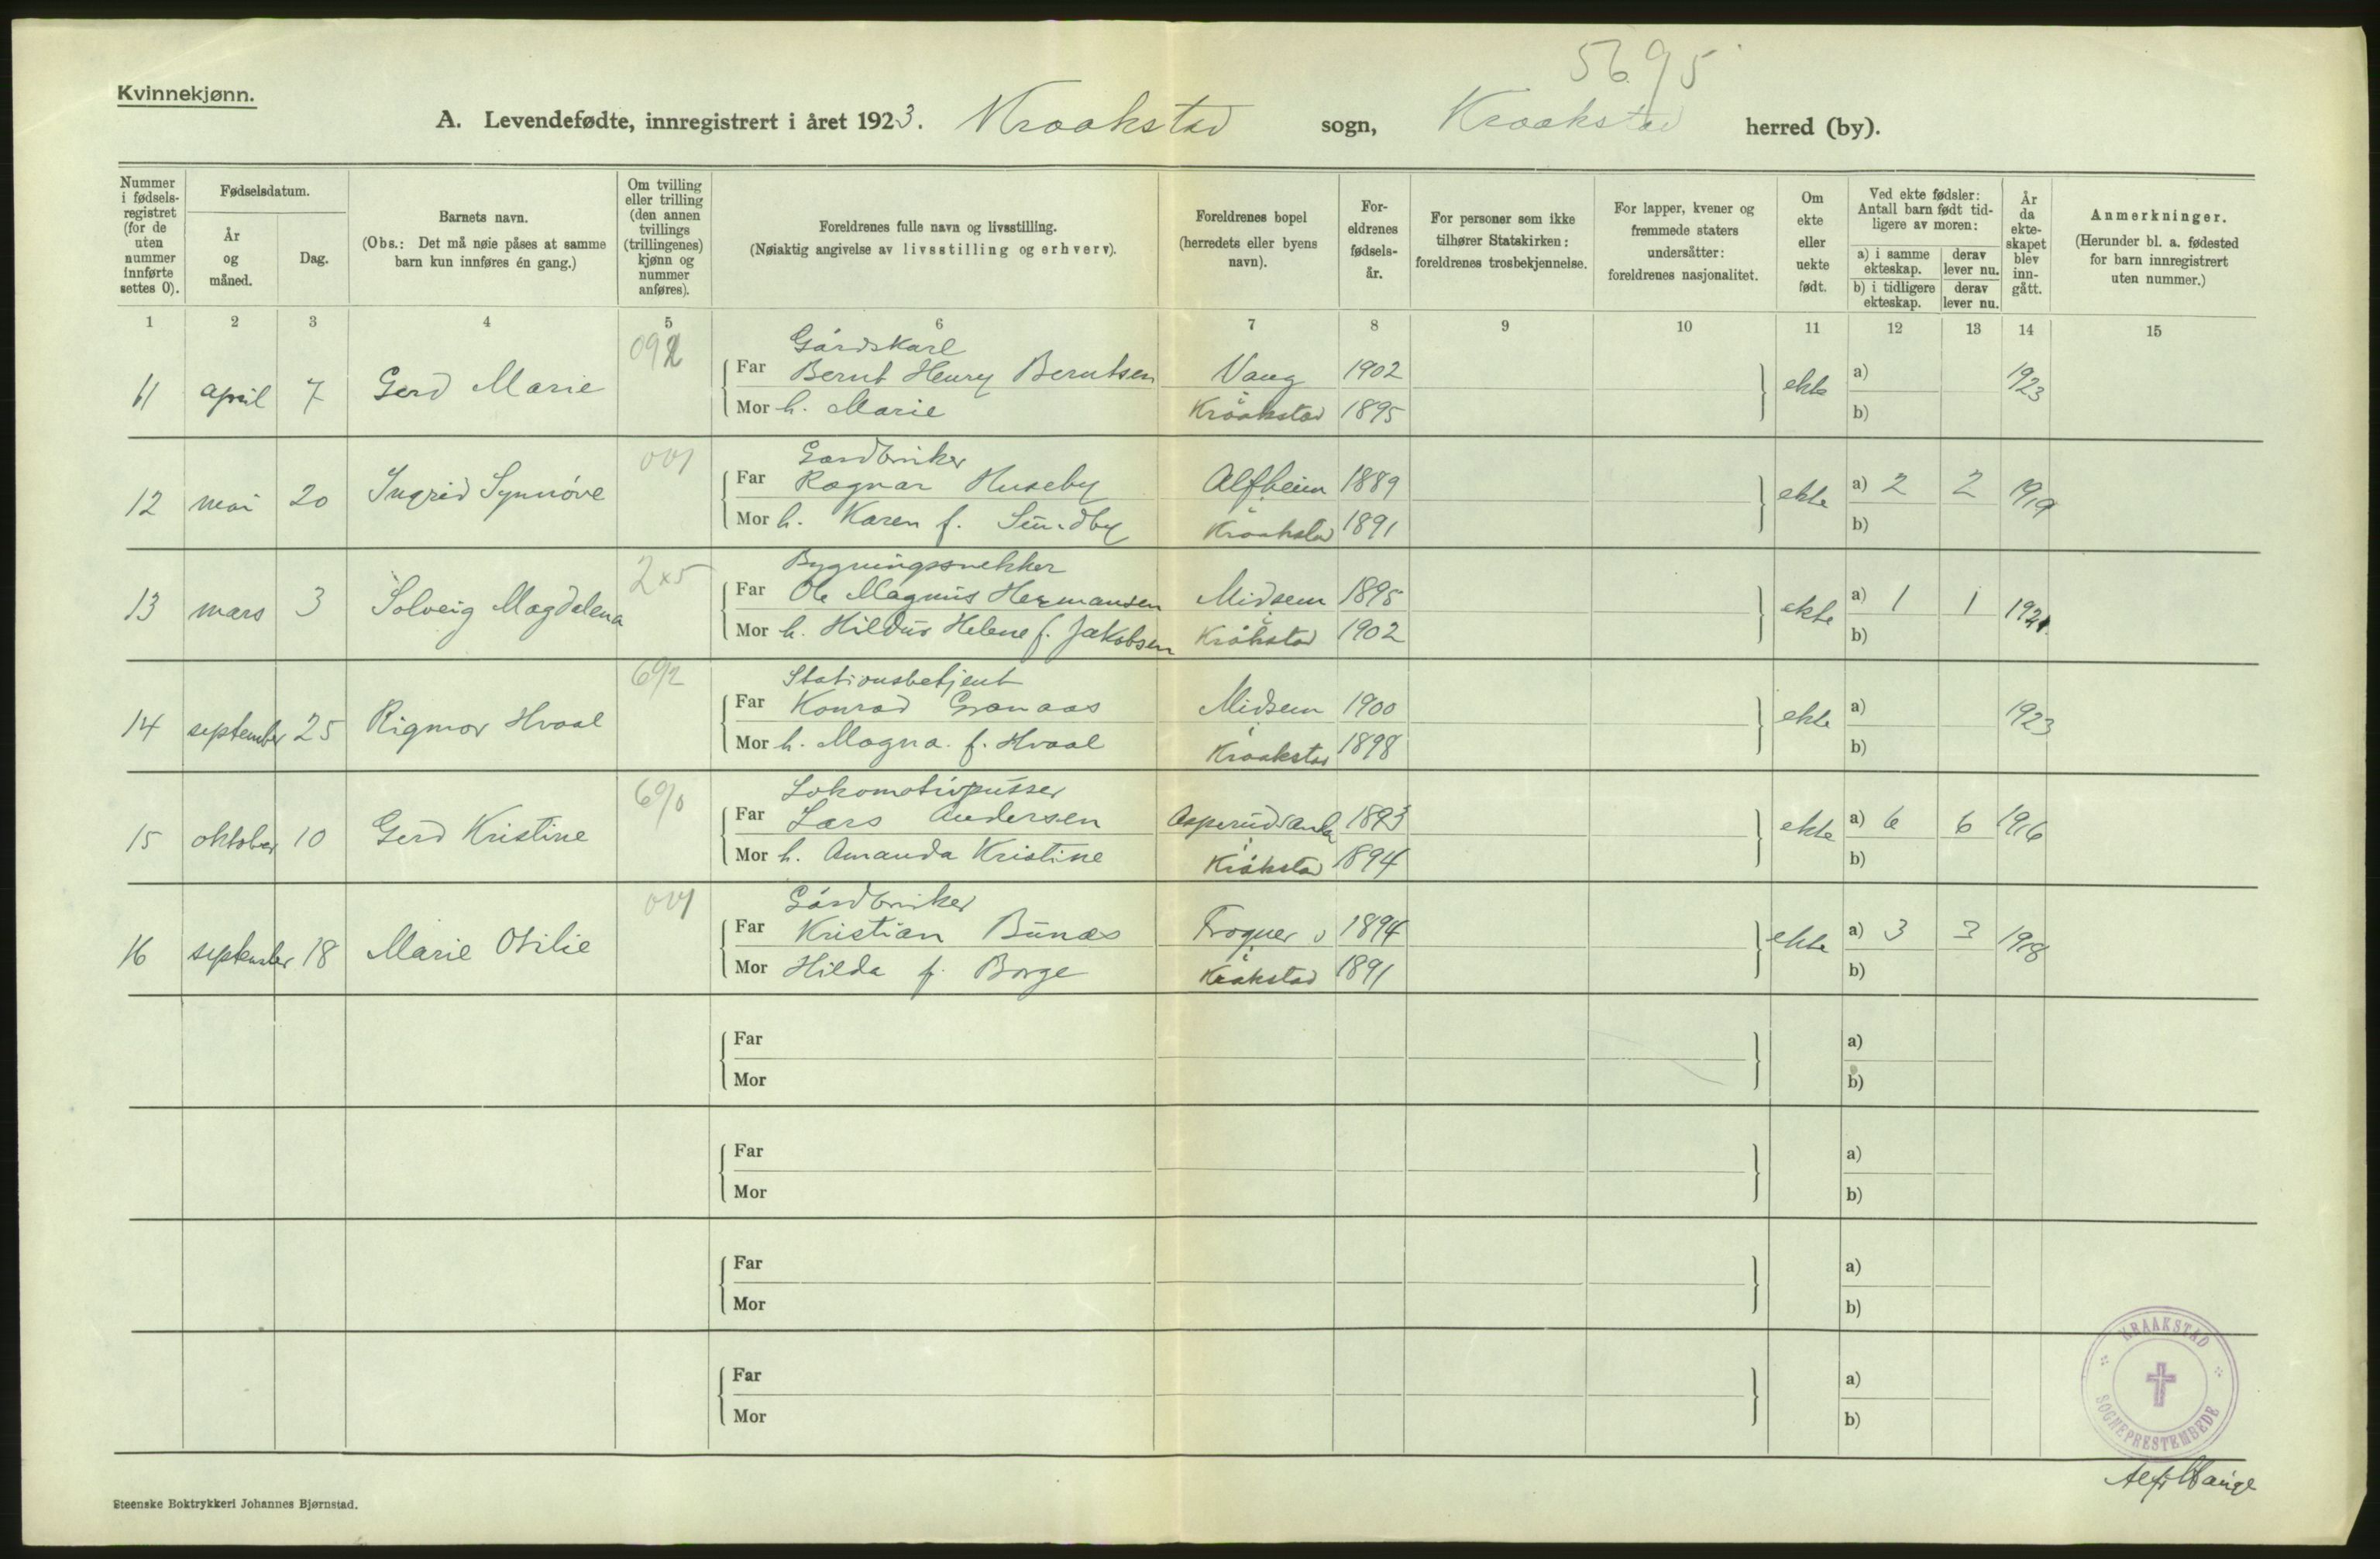 5695
Kvinnekjønn.
A. Levendefødte, innregistrert i året 1923. Kraakstad sogn, Kraakstad herred (by).
Nummer i fødselsregistret (for de uten nummer innførte settes 0).
Fødselsdatum.
År og måned.
Dag.
Barnets navn.
(Obs.: Det må nøie påses at samme barn kun innføres én gang.)
Om tvilling eller trilling (den annen tvillings (trillingenes) kjønn og nummer anføres).
Foreldrenes fulle navn og livsstilling.
(Nøiaktig angivelse av livsstilling og erhverv).
Foreldrenes bopel (herredets eller byens navn).
Foreldrenes fødselsår.
For personer som ikke tilhører Statskirken: foreldrenes trosbekjennelse.
For lapper, kvener og fremmede staters undersåtter: foreldrenes nasjonalitet.
Om ekte eller uekte født.
Ved ekte fødsler: Antall barn født tidligere av moren:
a) i samme ekteskap. derav lever nu.
b) i tidligere ekteskap. derav lever nu.
År da ekteskapet blev inngått.
Anmerkninger.
(Herunder bl. a. fødested for barn innregistrert uten nummer.)
1 2 3 4 5 6 7 8 9 10 11 12 13 14 15
092 Gårdskarl
11 april 7 Gerd Marie Far Bernt Henry Berntsen Vang 1902 ekte a) 1923
Mor h. Marie Kråakstad 1895 b)
001 Gardbruker
12 mai 20 Ingrid Synnøve Far Ragnar Huseby Alfheim 1889 ekte a) 2 2 1919
Mor h. Karen f. Sundby Kraakstad 1891 b)
2x5 Bygningssnekker
13 mars 3 Solveig Magdalena Far Ole Magnus Hermansen Midsem 1895 ekte a) 1 1 1921.
Mor h. Hildur Helene f. Jakobsen Kråkstad 1902 b)
692 Stationsbetjent
14 september 25 Rigmor Hvaal Far Konrad Granaas Midsem 1900 ekte a) 1923
Mor h. Magna f. Hvaal Kraakstad 1898 b)
690 Lokomotivpusser
15 oktober 10 Gerd Kristine Far Lars Andersen 1893 ekte a) 6 6 1916
Mor h. Amanda Kristine Kråkstad 1894 b)
001 Gårdbruker
16 september 18 Marie Otilie Far Kristian Bunæs Frogner 1894 ekte a) 3 3 1918
Mor Hilda f. Borge Kråkstad 1891 b)
Far a)
Mor b)
Far a)
Mor b)
Far a)
Mor b)
Far a)
Mor b)
KRAAKSTAD
SOGNEPRESTEMBEDE
Steenske Boktrykkeri Johannes Bjørnstad.